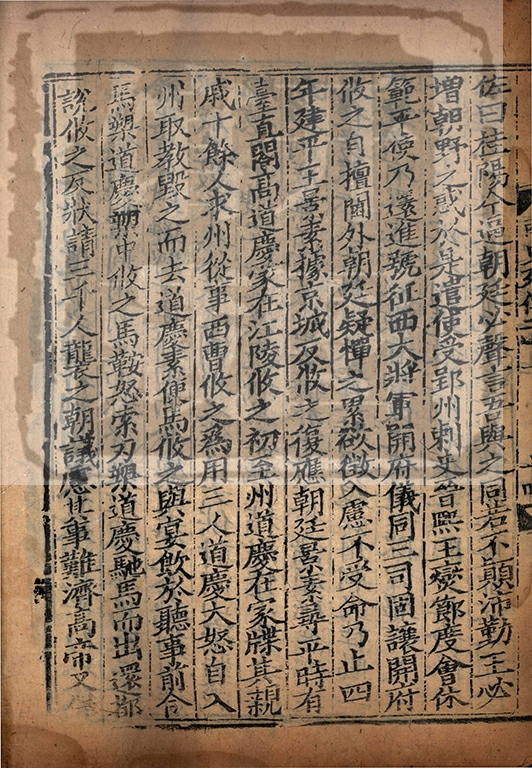 佐曰桂陽今逼朝廷必聲言吾與之同若不顛沛勤王必
增朝野之惑於是遣使受郢州刺史晉熙王燮節度會休
範平使乃還進號征西大將軍開府儀同三司固讓開府
攸之自擅閫外朝廷疑憚之累欲徵入慮不受命乃止四
年建平王景素據京城反攸之復應朝廷景素尋平時有
臺直閣高道慶家在江陵攸之初至州道慶在家牒其親
戚十餘人求州從事西曹攸之爲用三人道慶大怒自入
州取教毀之而去道慶素便馬攸之與宴飲於聽事前合
馬槊道慶槊中攸之馬鞍怒索刃槊道慶馳馬而出還都
說攸之反狀請三千人襲之朝議慮其事難濟高帝又保